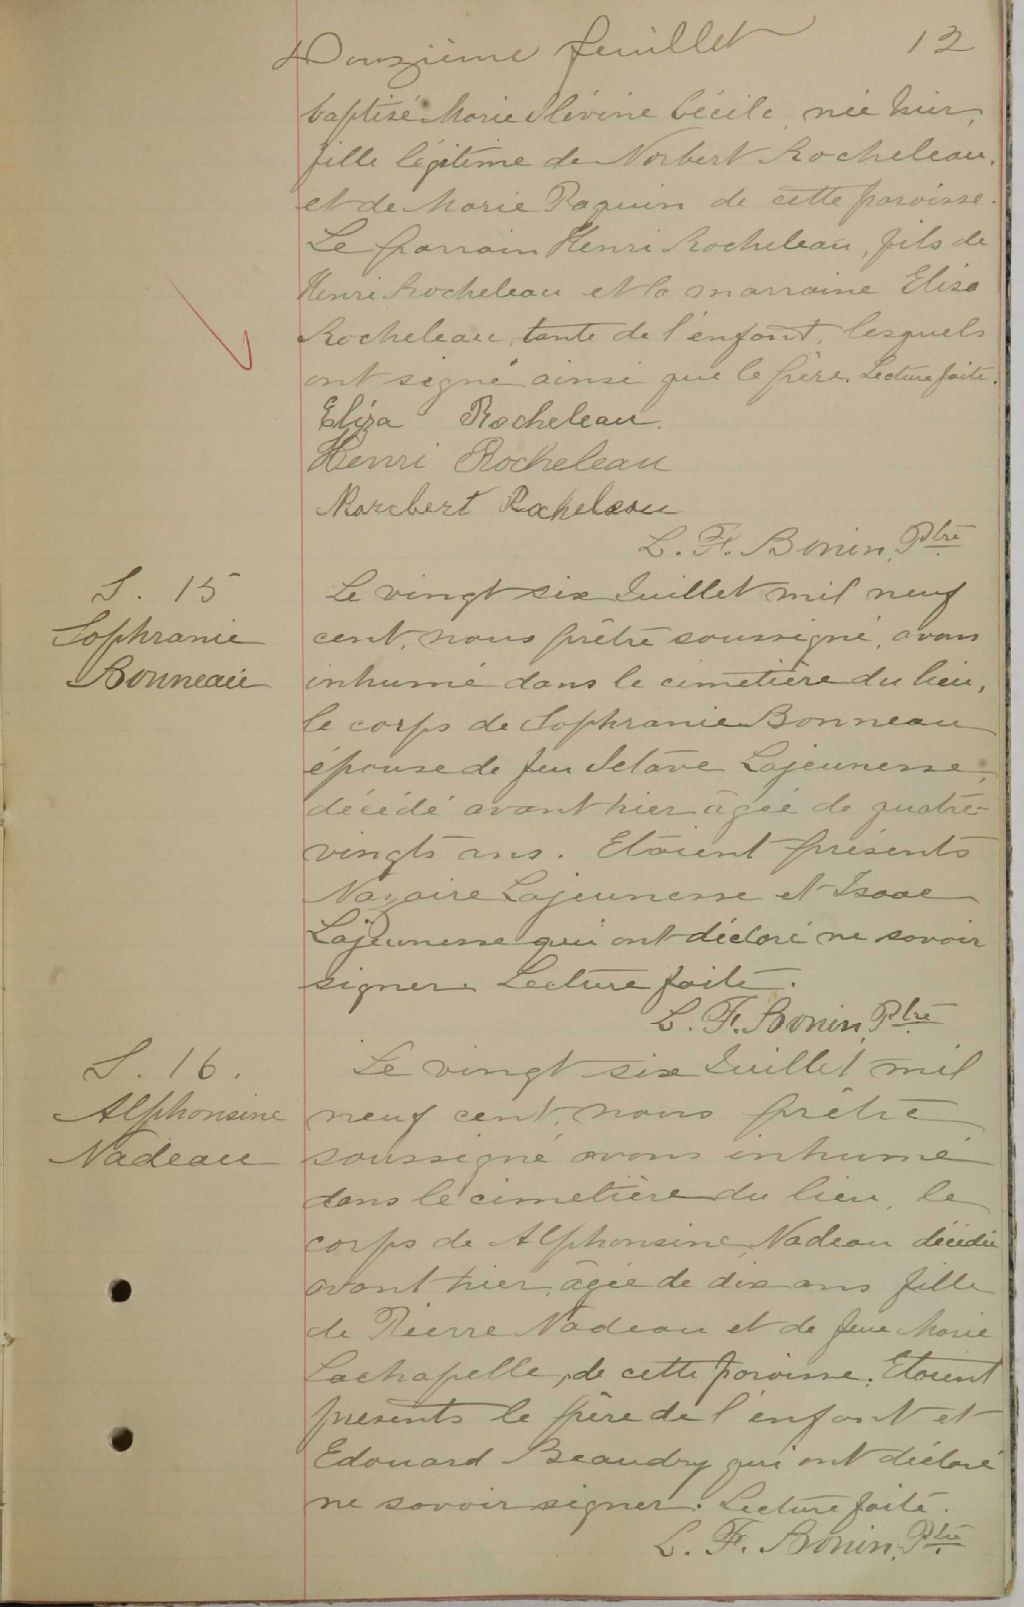 Douzième feuillet 12
baptisé Marie Olévine Cécile née hier,
fille légitime de Norbert Rocheleau,
et de Marie Paquin de cette paroisse.
Le parrain Henri Rocheleau, fils de
Henri Rocheleau et la marraine Eliza
Rocheleau, tante de l'enfant, lesquels
ont signé ainsi que le père. Lecture faite.
Eliza Rocheleau.
Henri Rocheleau
Norcbert Rocheleau
L. F. Bonin, Ptre
S. 15
Sophranie
Bonneau
Le vingt six Juillet mil neuf
cent, nous prêtre soussigné, avons
inhumé dans le cimetière du lieu,
le corps de Sophranie Bonneau
épouse de feu Octave Lajeunesse,
décédé avant hier âgée de quatre-
vingts ans. Etaient présents
Nazaire Lajeunesse et Isaae
Lajeunesse qui ont déclaré ne savoir
signer. Lecture faite.
L. F. Bonin, Ptre
S. 16.
Alphonsine
Nadeau
Le vingt six Juillet mil
neuf cent, nous prêtre
soussigné avons inhumé
dans le cimetière du lieu, le
corps de Alphonsine Nadeau décédée
avant hier, âgée de dix ans fille
de Pierre Nadeau et de feue Marie
Lachapelle, de cette paroisse. Etaient
présents le père de l'enfant et
Edouard Beaudry qui ont déclaré
ne savoir signer. Lecture faite.
L. F. Bonin, Ptre